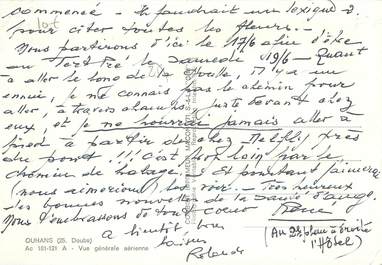 commencé - Il faudrait un lexique
pour citer toutes les fleurs.
Nous partirons d'ici le 17/6 afin d'être
au Tertre le samedi 19/6 - Quant
à aller le long de la Moselle, il y a un
ennui, je ne connais pas le chemin pour
aller, à travers champs, juste devant chez
eux, et je ne pourrai jamais aller à
pied à partir de chez près
du pont !!! C'est trop loin par le
chemin de halage. Et pourtant j'aimerai
(nous aimerions) les voir. - Très heureux
des bonnes nouvelles de la santé d'
Nous t'embrassons de tout coeur
à bientôt bons
baisers
(Au à droite
l'Hôtel)
OUHANS (25. Doubs)
Ac 101-121 A - Vue générale aérienne